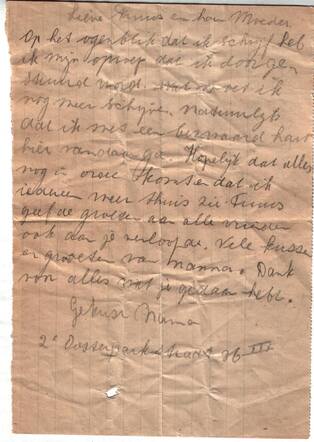 Lieve Tinus en hou Moeder
Op het ogenblik dat ik schrijf heb
ik mijn oproep dat ik doorgen
stuurd wordt. Wat moet ik
nog meer schrijven natuurlijk
dat ik met een bezwaard hart
hier vandaan ga. Hopelijk dat alles
nog in orde komt en dat ik
iedereen weer thuis zie Tinus
geef de groeten aan alle vrienden
ook aan je verloofde. Vele kussen
en groeten van mamma. Dank
voor alles wat je gedaan hebt.
Gekust Mama
2e Oosterparkstraat 76 III